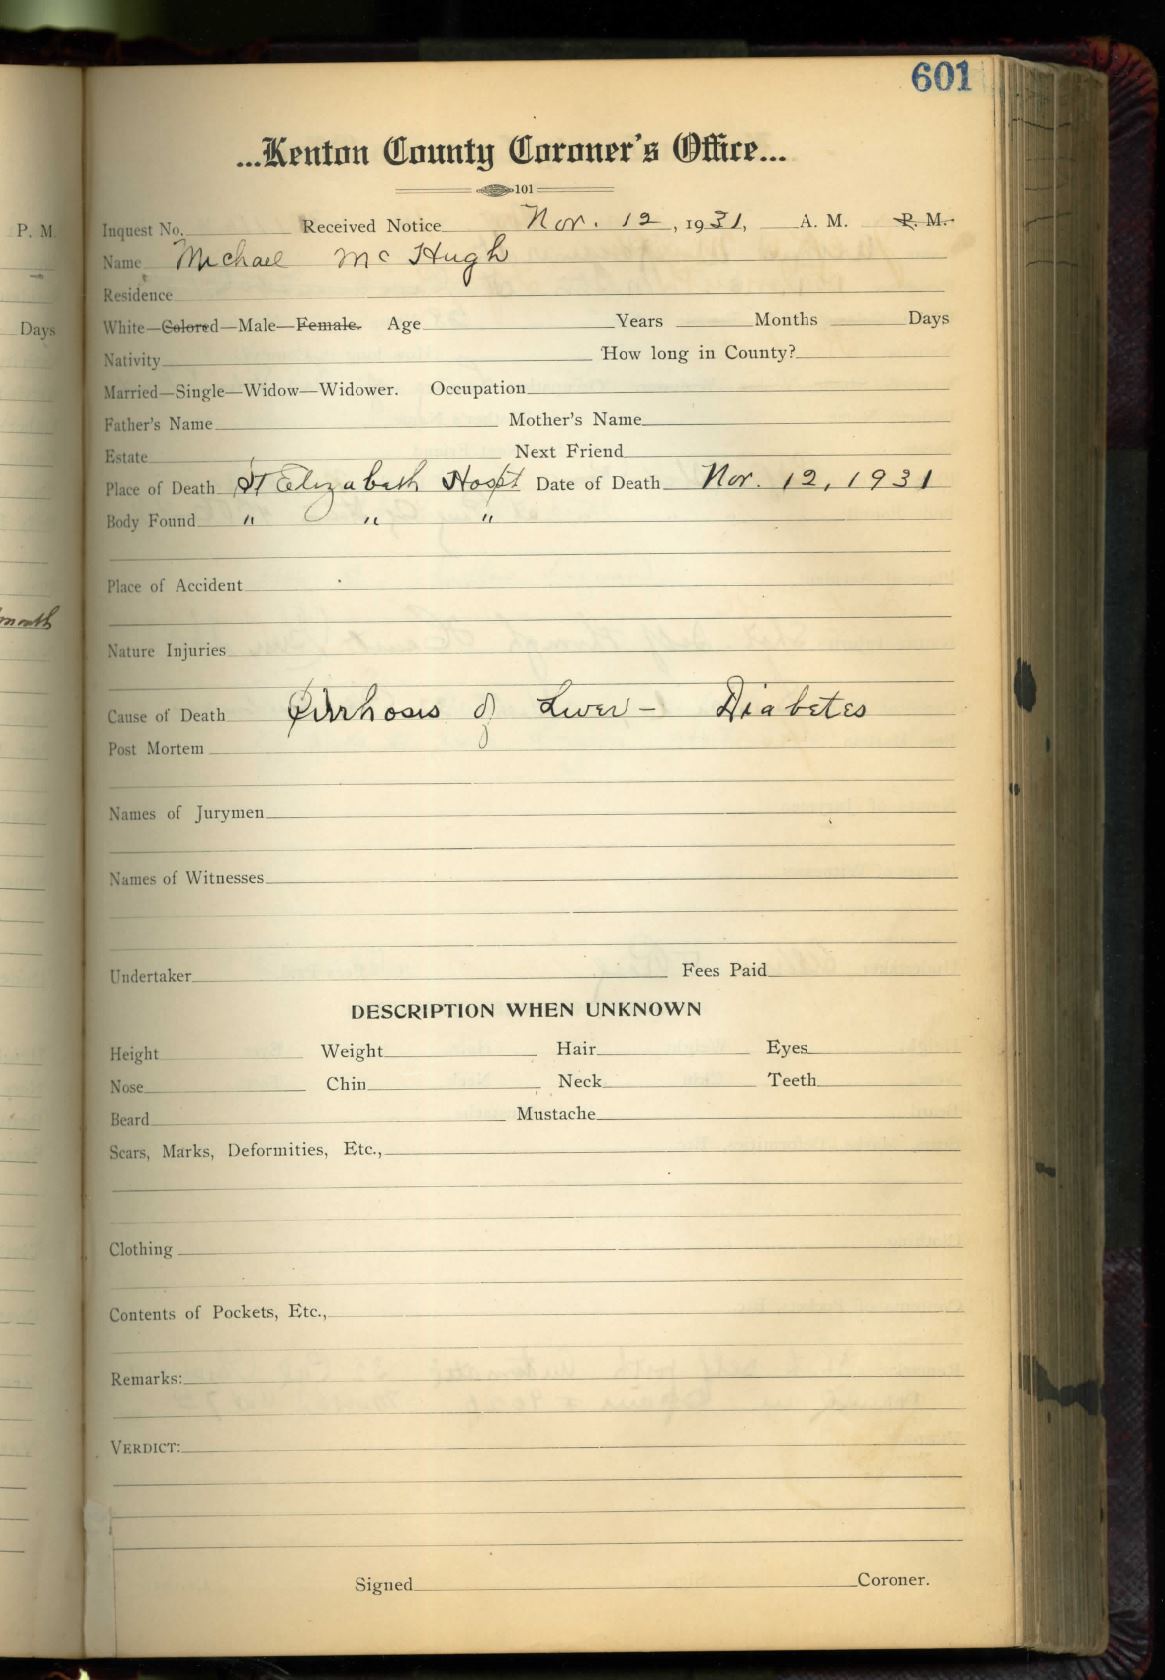 601
...Kenton County Coroner's Office...
101
Inquest No. Received Notice Nov. 12, 1931, A. M. P. M.
Name Michael Mc Hugh
Residence
White—Colored—Male—Female. Age Years Months Days
Nativity How long in County?
Married—Single—Widow—Widower. Occupation
Father's Name Mother's Name
Estate Next Friend
Place of Death St Elizabeth Hospt Date of Death Nov. 12, 1931
Body Found " " "
Place of Accident
Nature Injuries
Cause of Death Cirrhosis of Liver - Diabetes
Post Mortem
Names of Jurymen
Names of Witnesses
Undertaker Fees Paid
DESCRIPTION WHEN UNKNOWN
Height Weight Hair Eyes
Nose Chin Neck Teeth
Beard Mustache
Scars, Marks, Deformities, Etc.,
Clothing
Contents of Pockets, Etc.,
Remarks:
VERDICT:
Signed Coroner.
P. M.
Days
month